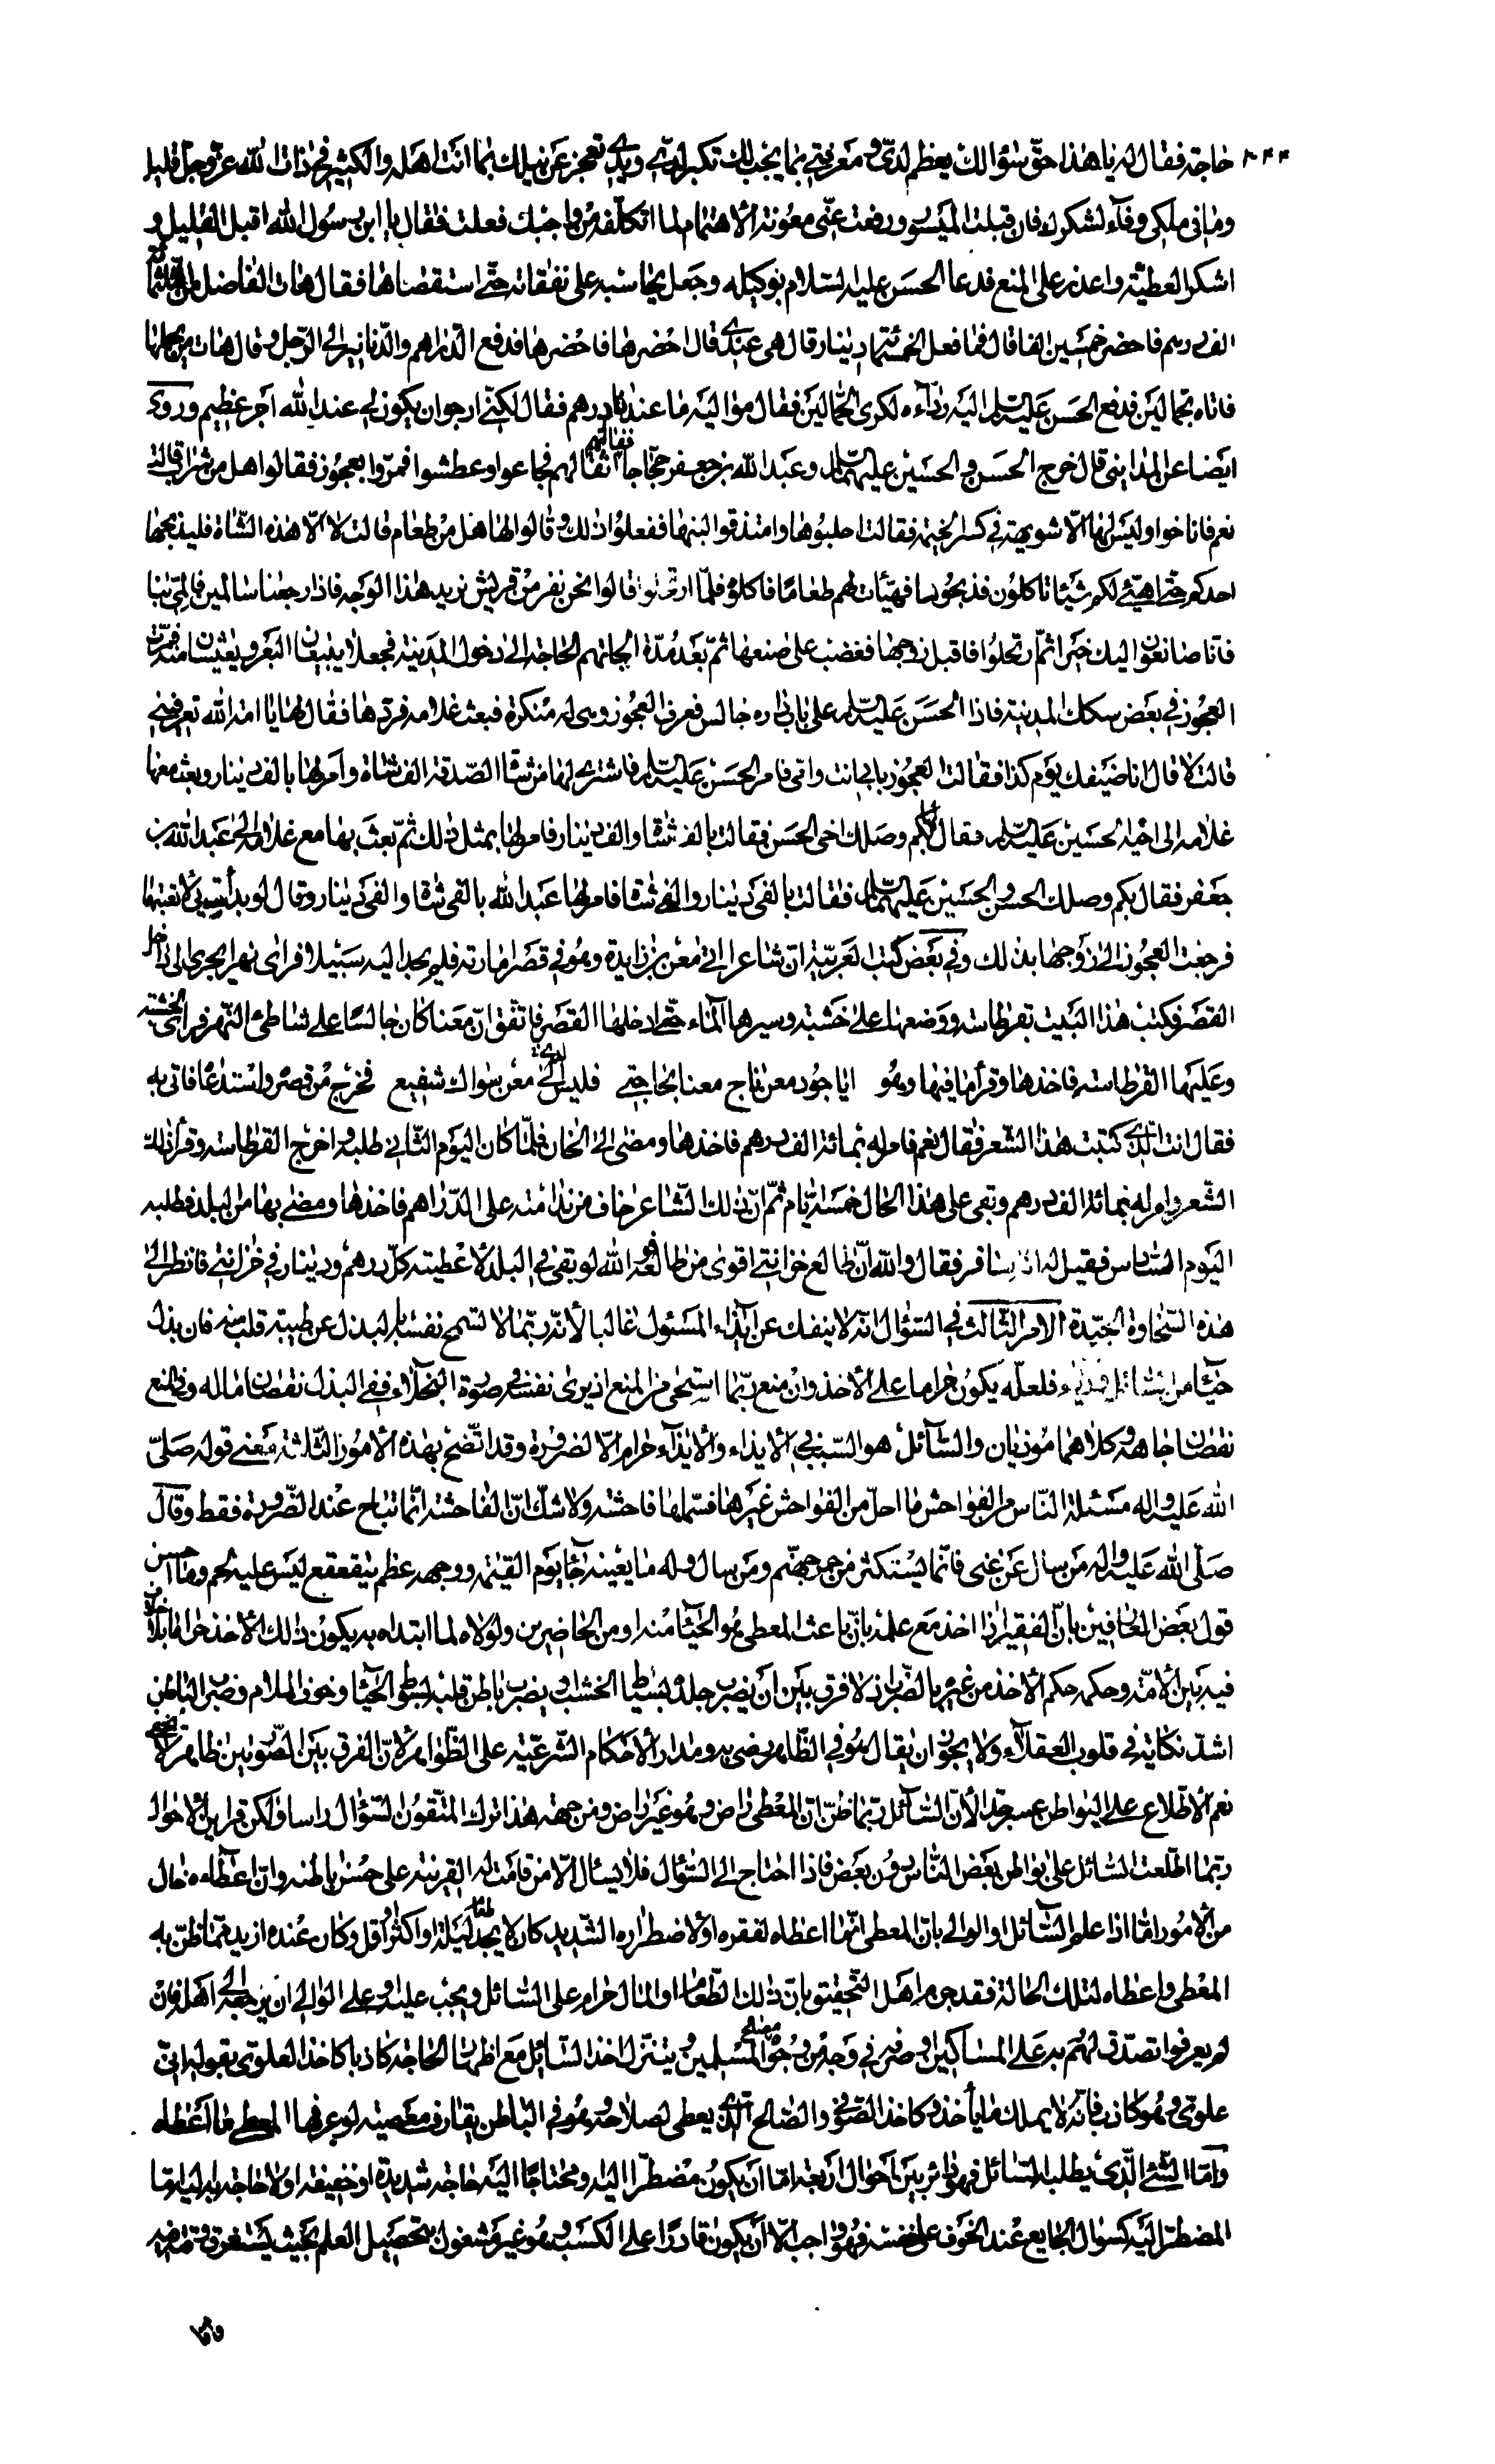 حاجة فقال له يا هذا حقّ سؤالك يعظم لديّ و معرفتي بما يجب لك تكبر لديّ و يدي تعجز عن نيلك بما انت اهله والكثير في ذات الله عزّ وجلّ قليل
وما في ملكي وفآء لشكرك فان قبلت الميسور ورفعت عنّى معونة الاهتمام لما اتكلّفه من واجبك فعلت فقال يا ابن رسول الله اقبل القليل و
اشكر العطيّة واعذر على المنع فدعا الحسن عليه السّلام بوكيله وجعل يحاسبه على نفقاته حتّى استقصاها فقال هات الفاضل من الثلثمائة
الف درهم فاحضر خمسين الفا قال فما فعل الخمسمائة دينار قال هى عندي قال احضرها فاحضرها فدفع الدّراهم والدّنانير الى الرّجل وقال هات من يحملها
فاتاه بحمالين فدفع الحسن عليه السّلم اليه ردآءه لكرى الحمّالين فقال مواليه ما عندنا درهم فقال لكنّي ارجوان يكون لي عند الله اجر عظيم وروى
ايضا عن المدايني قال خرج الحسن و الحسين عليهما السّلم وعبد الله بن جعفر حجّاجا ففاتهم اثقالهم فجاعوا وعطشوا فمرّوا بعجوز فقالوا هل من شراب قالت
نعم فاناخوا وليس لها الّا شويهة في كسر الخيمة فقالت احلبوها وامتذقوا لبنها ففعلوا ذلك و قالوا لها هل من طعام قالت لا الّا هذه الشّاة فليذبحها
احدكم حتّى اهيّئ لكم شيئا تاكلون فذبحوها فهيّات لهم طعاما فاكلوا فلمّا ارتحلوا قالوا نحن نفر من قريش نريد هذا الوجه فاذا رجعنا سالمين فالمّي بنا
فانّا صانعون اليك خيرا ثمّ رتحلوا فاقبل زوجها فغضب على صنعها ثمّ بعد مدّة الجاتهم الحاجة الى دخول المدينة فجعلا يبيعان البعر ويعيشان منه فمرّت
العجوز في بعض سكك المدينة فاذا الحسن عليه السّلم على باب داره جالس فعرف العجوز وهى له منكرة فبعث غلامه فردّها فقال لها يا امة الله تعرفيني
قالت لا قال انا ضيفك يوم كذا فقالت العجوز بابي انت وامّي فامر الحسن عليه السّلم فاشترى لها من شاء الصّدقة الف شاة وامر لها بالف دينار وبعث معها
غلامه الى اخيه الحسين عليه السّلم فقال بكم وصلك اخى الحسن فقالت بالف شاة والف دينار فامر لها بمثل ذلك ثمّ بعث بها مع غلامه الى عبد الله بن
جعفر فقال بكم وصلك الحسن و الحسين عليهما السّلم فقالت بالفى دينار والفى شاة فامر لها عبد الله بالفى شاة والفى دينار وقال لو بدأت بي لاتعبتهما
فرجعت العجوز الى زوجها بذلك وفي بعض كتب العربيّة انّ شاعرا اتى معن بن زايدة وهو في قصر امارته فلم يجد اليه سبيلا فراى نهرا يجري الى داخل
القصر فكتب هذا البيت بقرطاسه ووضعها على خشبة وسيرها المآء حتّى ادخلها القصر فاتّفق انّ معنا كان جالسا على شاطئ النّهر فراى الخشبة
وعليها القرطاسه فاخذها وقرأ ما فيها وهو ايا جود معن ناج معنا بحاجتي فليس الى معن سواك شفيع فخرج من قصره واستدعا فاتى به
فقال انت الّذي كتبت هذا الشّعر فقال نعم فامر له بمائة الف درهم فاخذها ومضى الى الخان فلمّا كان اليوم الثّاني طلبه و اخرج القرطاسه وقرأ ذلك
الشّعر وامر له بمائة الف درهم وبقى على هذا الحال خمسة ايّام ثمّ انّ ذلك الشّاعر خاف من ندامته على الدّراهم فاخذها ومضى بها من البلد فطلبه
اليوم السّادس فقيل له انّه سافر فقال والله انّ طالع خزانتي اقوى من طالعه و الله لو بقى في البلد لاعطيته كلّ درهم ودينار في خزانتي فانظر الى
هذه السّخاوة الجيّدة الامر الثّالث في السّؤال انّه لا ينفك عن ايذاء المسئول غالبا لانّه ربّما لا تسمح نفسه بالبذل عن طيبة قلب منه فان بذل
حيآء من السّائل فلعلّه يكون حراما على الاخذ وان منع ربّما استحى من المنع اذ يرى نفسه في صورة البخلاء ففي البذل نقصان ماله وفي المنع
نقصان جاهه و كلاهما موذيان والسّآئل هو السّبب في الايذاء والايذآء حرام الّا لضرورة وقد اتّضح بهذه الامور الثّلاثة معنى قوله صلّى
الله عليه و اله مسئلة النّاس من الفواحش ما احلّ من الفواحش غيرها فسمّاها فاحشة ولا شكّ انّ الفاحشة انّما تباح عند الضّرورة فقط وقال
صلّى الله عليه و اله من سال عن غنى فانّما يستكثر من جمر جهنّم ومن سال وله ما يغنيه جآء يوم القيمة ووجهه عظم يتقعقع ليس عليه لحم وما احسن
قول بعض العارفين بانّ الفقير اذا اخذ مع علمه بانّ باعث المعطى هو الحيآء منه او من الحاضرين ولولاه لما ابتدله به يكون ذلك الاخذ حراما بلا خلاف
فيه بين الامّة وحكمه حكم الاخذ من غيره بالضّرب اذ لا فرق بين ان يضرب جلده بسياط الخشب او يضرب باطن قلبه بسوط الحيآء وخوف الملام وضرب الباطن
اشدّ نكاية في قلوب العقلآء ولا يجوز ان يقال هو في الظّاهر رضى به ومدار الاحكام الشّرعيّة على الظّواهر لانّ الفرق بين الصّورتين ظاهر
نعم الاطّلاع على البواطن عسر جدّا لانّ السّآئل ربّما ظنّ انّ المعطى راض وهو غير راض ومن جهة هذا ترك المتّقون السّؤال راسا ولكن قراين الاحوال
ربّما اطّلعت السّائل على بواطن بعض النّاس دون بعض فاذا احتاج الى السّؤال فلا يسأل الّا من قامت له القرينة على حسن باطنه وانّ اعطآءه خال
من الامور امّا اذا علم السّآئل او الوالى بانّ المعطى انّما اعطاه لفقره اولاضطراره الشّديد كان لا يجد طعام ليلة او اكثر او اقل وكان عنده ازيد ممّا ظنّ به
المعطى واعطاه لتلك الحالة فقد جزم اهل التّحقيق بانّ ذلك الطّعام او المال حرام على السّائل ويجب عليه و على الوالى ان يرجعه الى اهله فان
لم يعرفوا تصدّق لهم به على المساكين او صرفه في وجه من وجوه مصالح المسلمين و يتنزل اخذ السّائل مع اظهار الحاجة كاذبا كاخذ العلوي بقوله انّي
علوي وهو كاذب فانّه لا يملك ما يأخذه وكاخذ الصّوفي والصّالح الّذي يعطى لصلاحه وهو في الباطن يقارف معصية لو عرفها المعطى ما اعطاه
وامّا الشّئ الّذي يطلبه السّائل فهو دائر بين احوال اربعة امّا ان يكون مضطرّا اليه ومحتاجا اليه حاجة شديدة او خفيفة اولا حاجة به اليه امّا
المضطرّ اليه كسؤال الجايع عند الخوف على نفسه فهو واجب الّا ان يكون قادرا على الكسب وهو غير مشغول بتحصيل العلم بحيث يستغرق